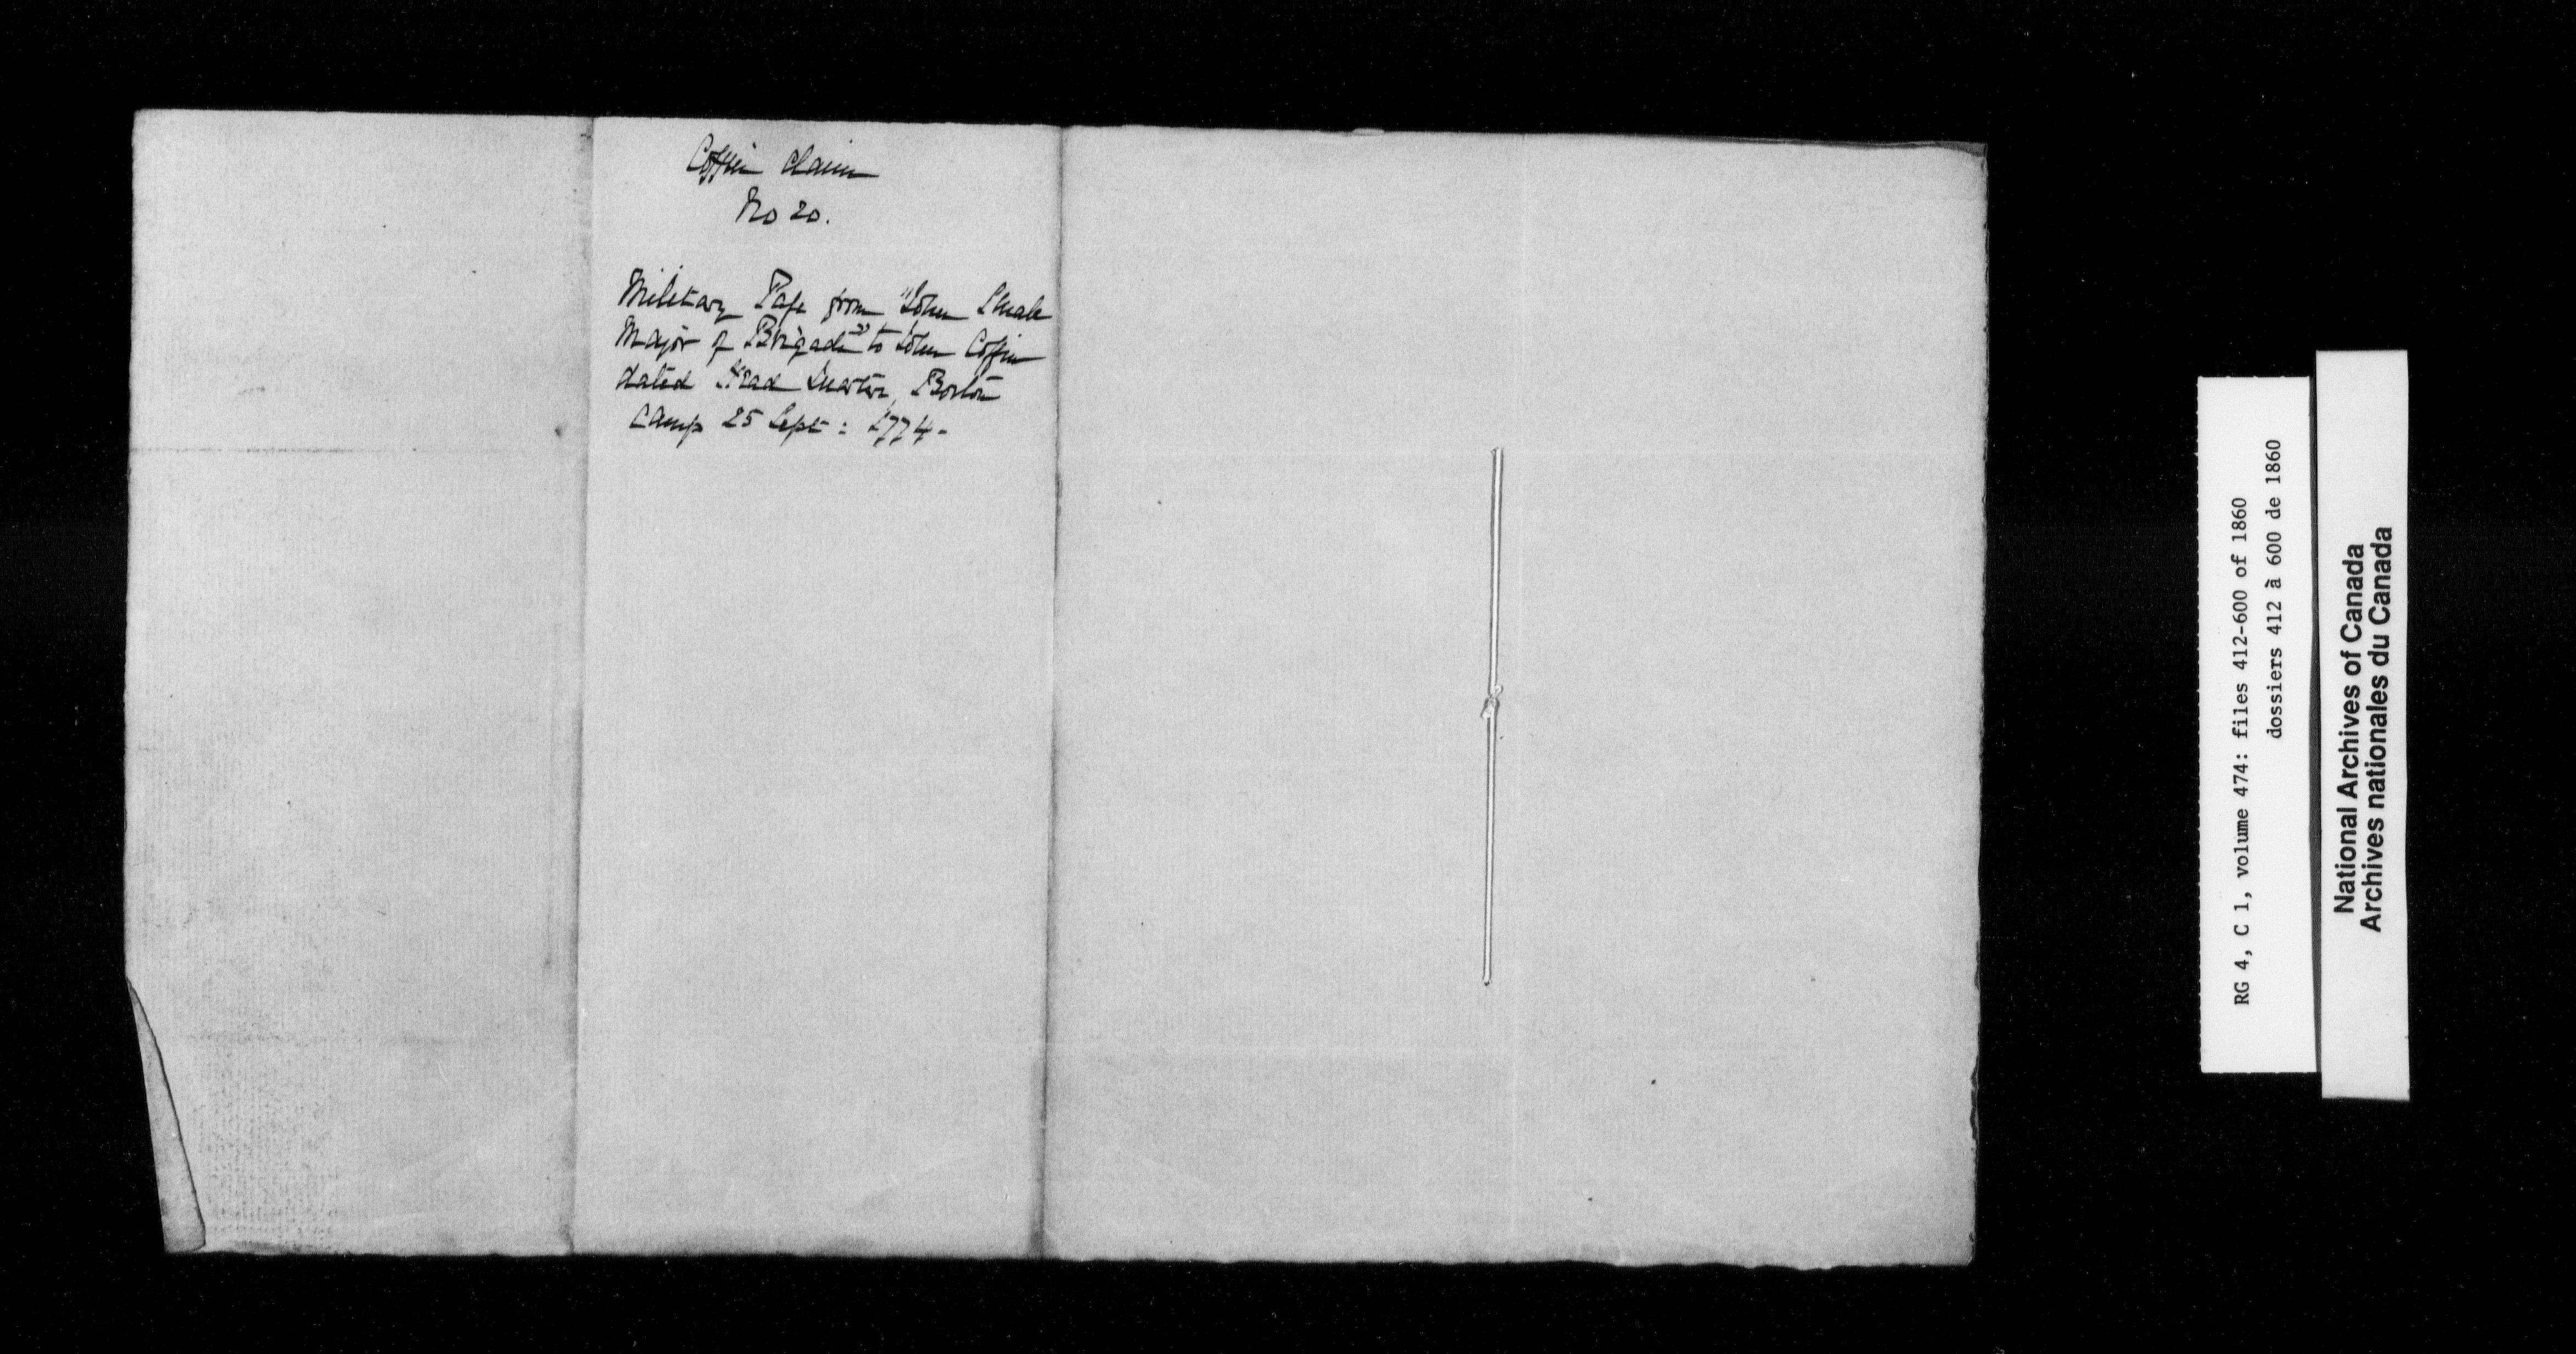 Coffin claim
No 20.
Military Pass from "John Small
Major of Brigade" to John Coffin
dated Head Quarters, Boston
Camp 25 Sept: 1774-
RG 4, C 1, volume 474: files 412-600 of 1860
dossiers 412 à 600 de 1860
National Archives of Canada
Archives nationales du Canada